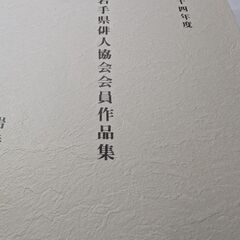 十四年度
岩手県俳人協会会員作品集